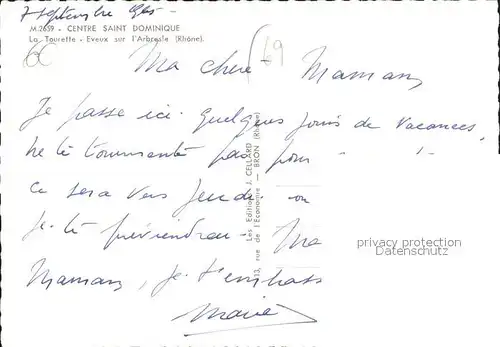 7 septembre
M.2659 - CENTRE SAINT DOMINIQUE
La Tourette - Eveux sur l'Arbresle (Rhône).
69
Ma chere Maman
Je passe ici quelques jours de vacances,
ne te tourmente pas pour
ce sera vers jeudi. on
je te préviendrai - Ma
Maman, je t'embrasse
Marie
Les Editions J. CELLARD
13, rue de l'Economie - BRON (Rhône)
privacy protection
Datenschutz